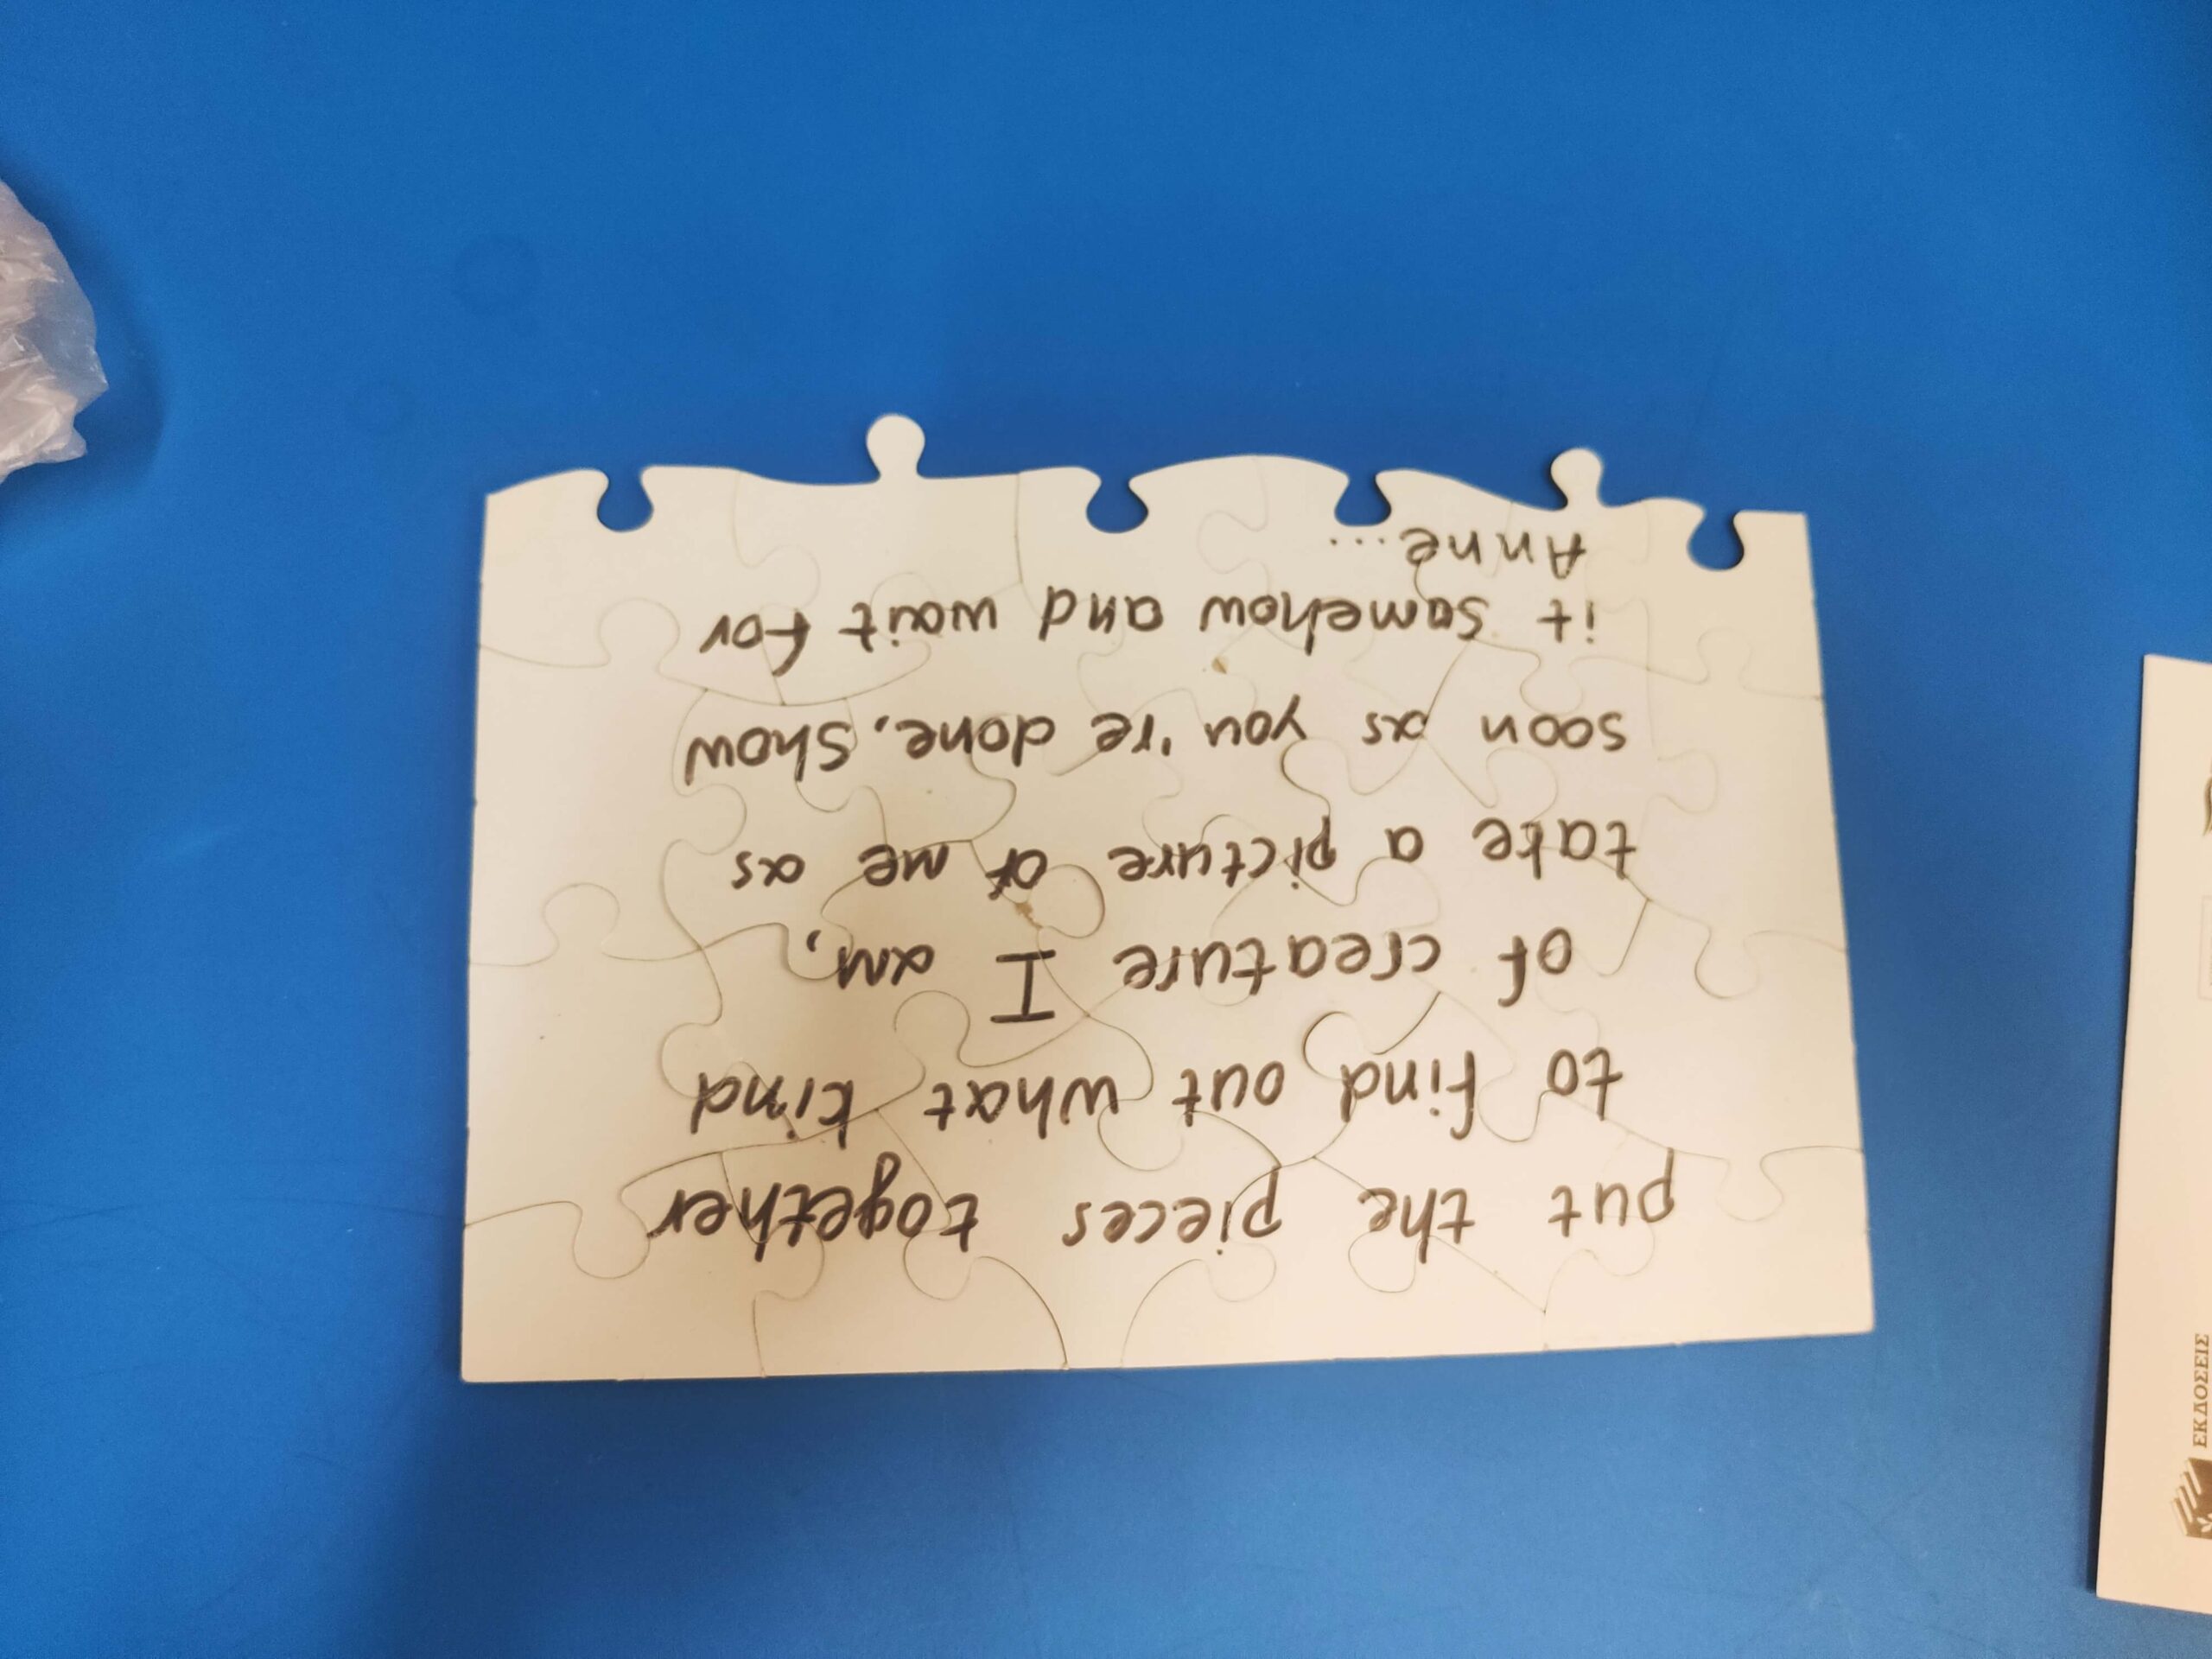 put the pieces together
to find out what kind
of creature I am,
take a picture of me as
soon as you're done, show
it somehow and wait for
Anne...
ΕΚΔΟΣΕΙΣ